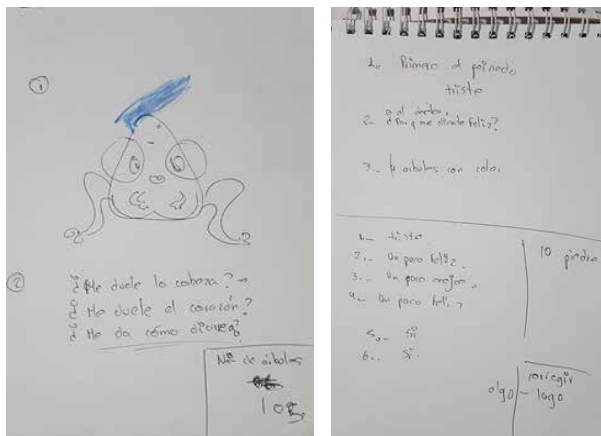 1
2
¿Me duele la cabeza?
¿Me duele el corazón?
¿Me da cómo diarrea?
Nº de árboles
105
1. Primero el peinado
triste
2.- o al doctor,
¿Por que me siento feliz?
3.- árboles con color
1.- triste
2.- Un poco feliz.
3.- Un poco mejor.
4.- Un poco feliz
5.- Si
6.- Si.
10 piedra
corregir
algo - lago